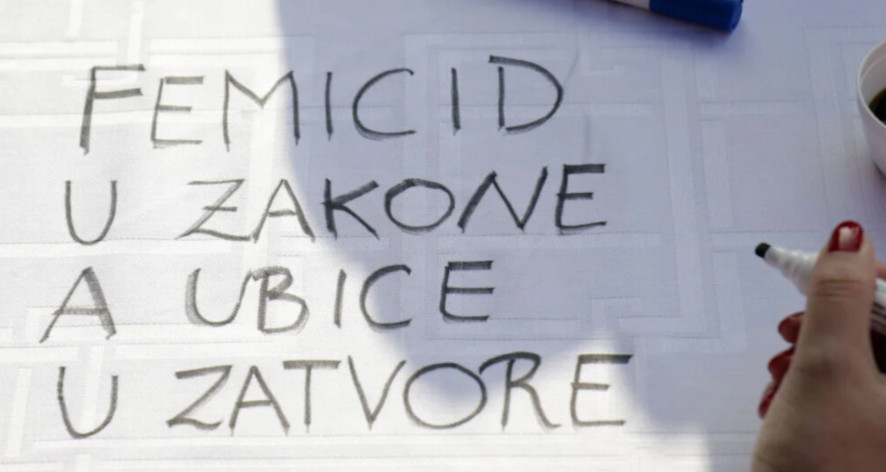 FEMICID
U ZAKONE
A UBICE
U ZATVORE